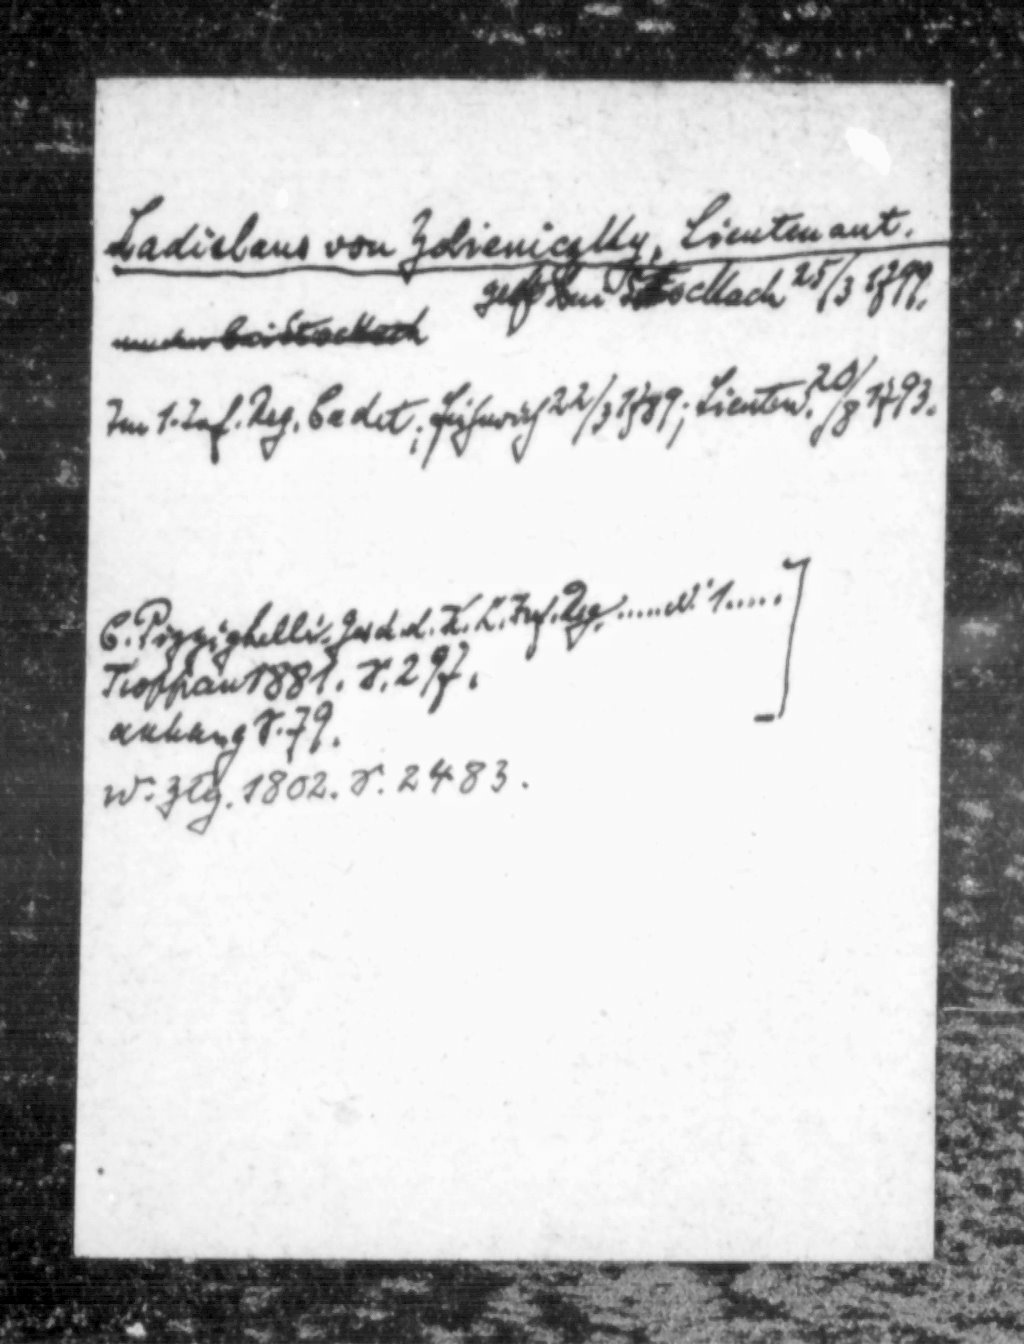 Ladislaus von Zdvieniczky, Lieutenant.
gef. bei Stockach 25/3 1799.
bei Stockach
Im 1. Inf. Reg. Cadet; Fähnrich 22/3 1789; Lieuten. 20/8 1793.
C. Pizzighelli. Gesch. d. K. K. Inf. Reg. ..... N. 1.....
Troppau 1881. S. 297.
anhang S. 79.
W. Ztg. 1802. S. 2483.